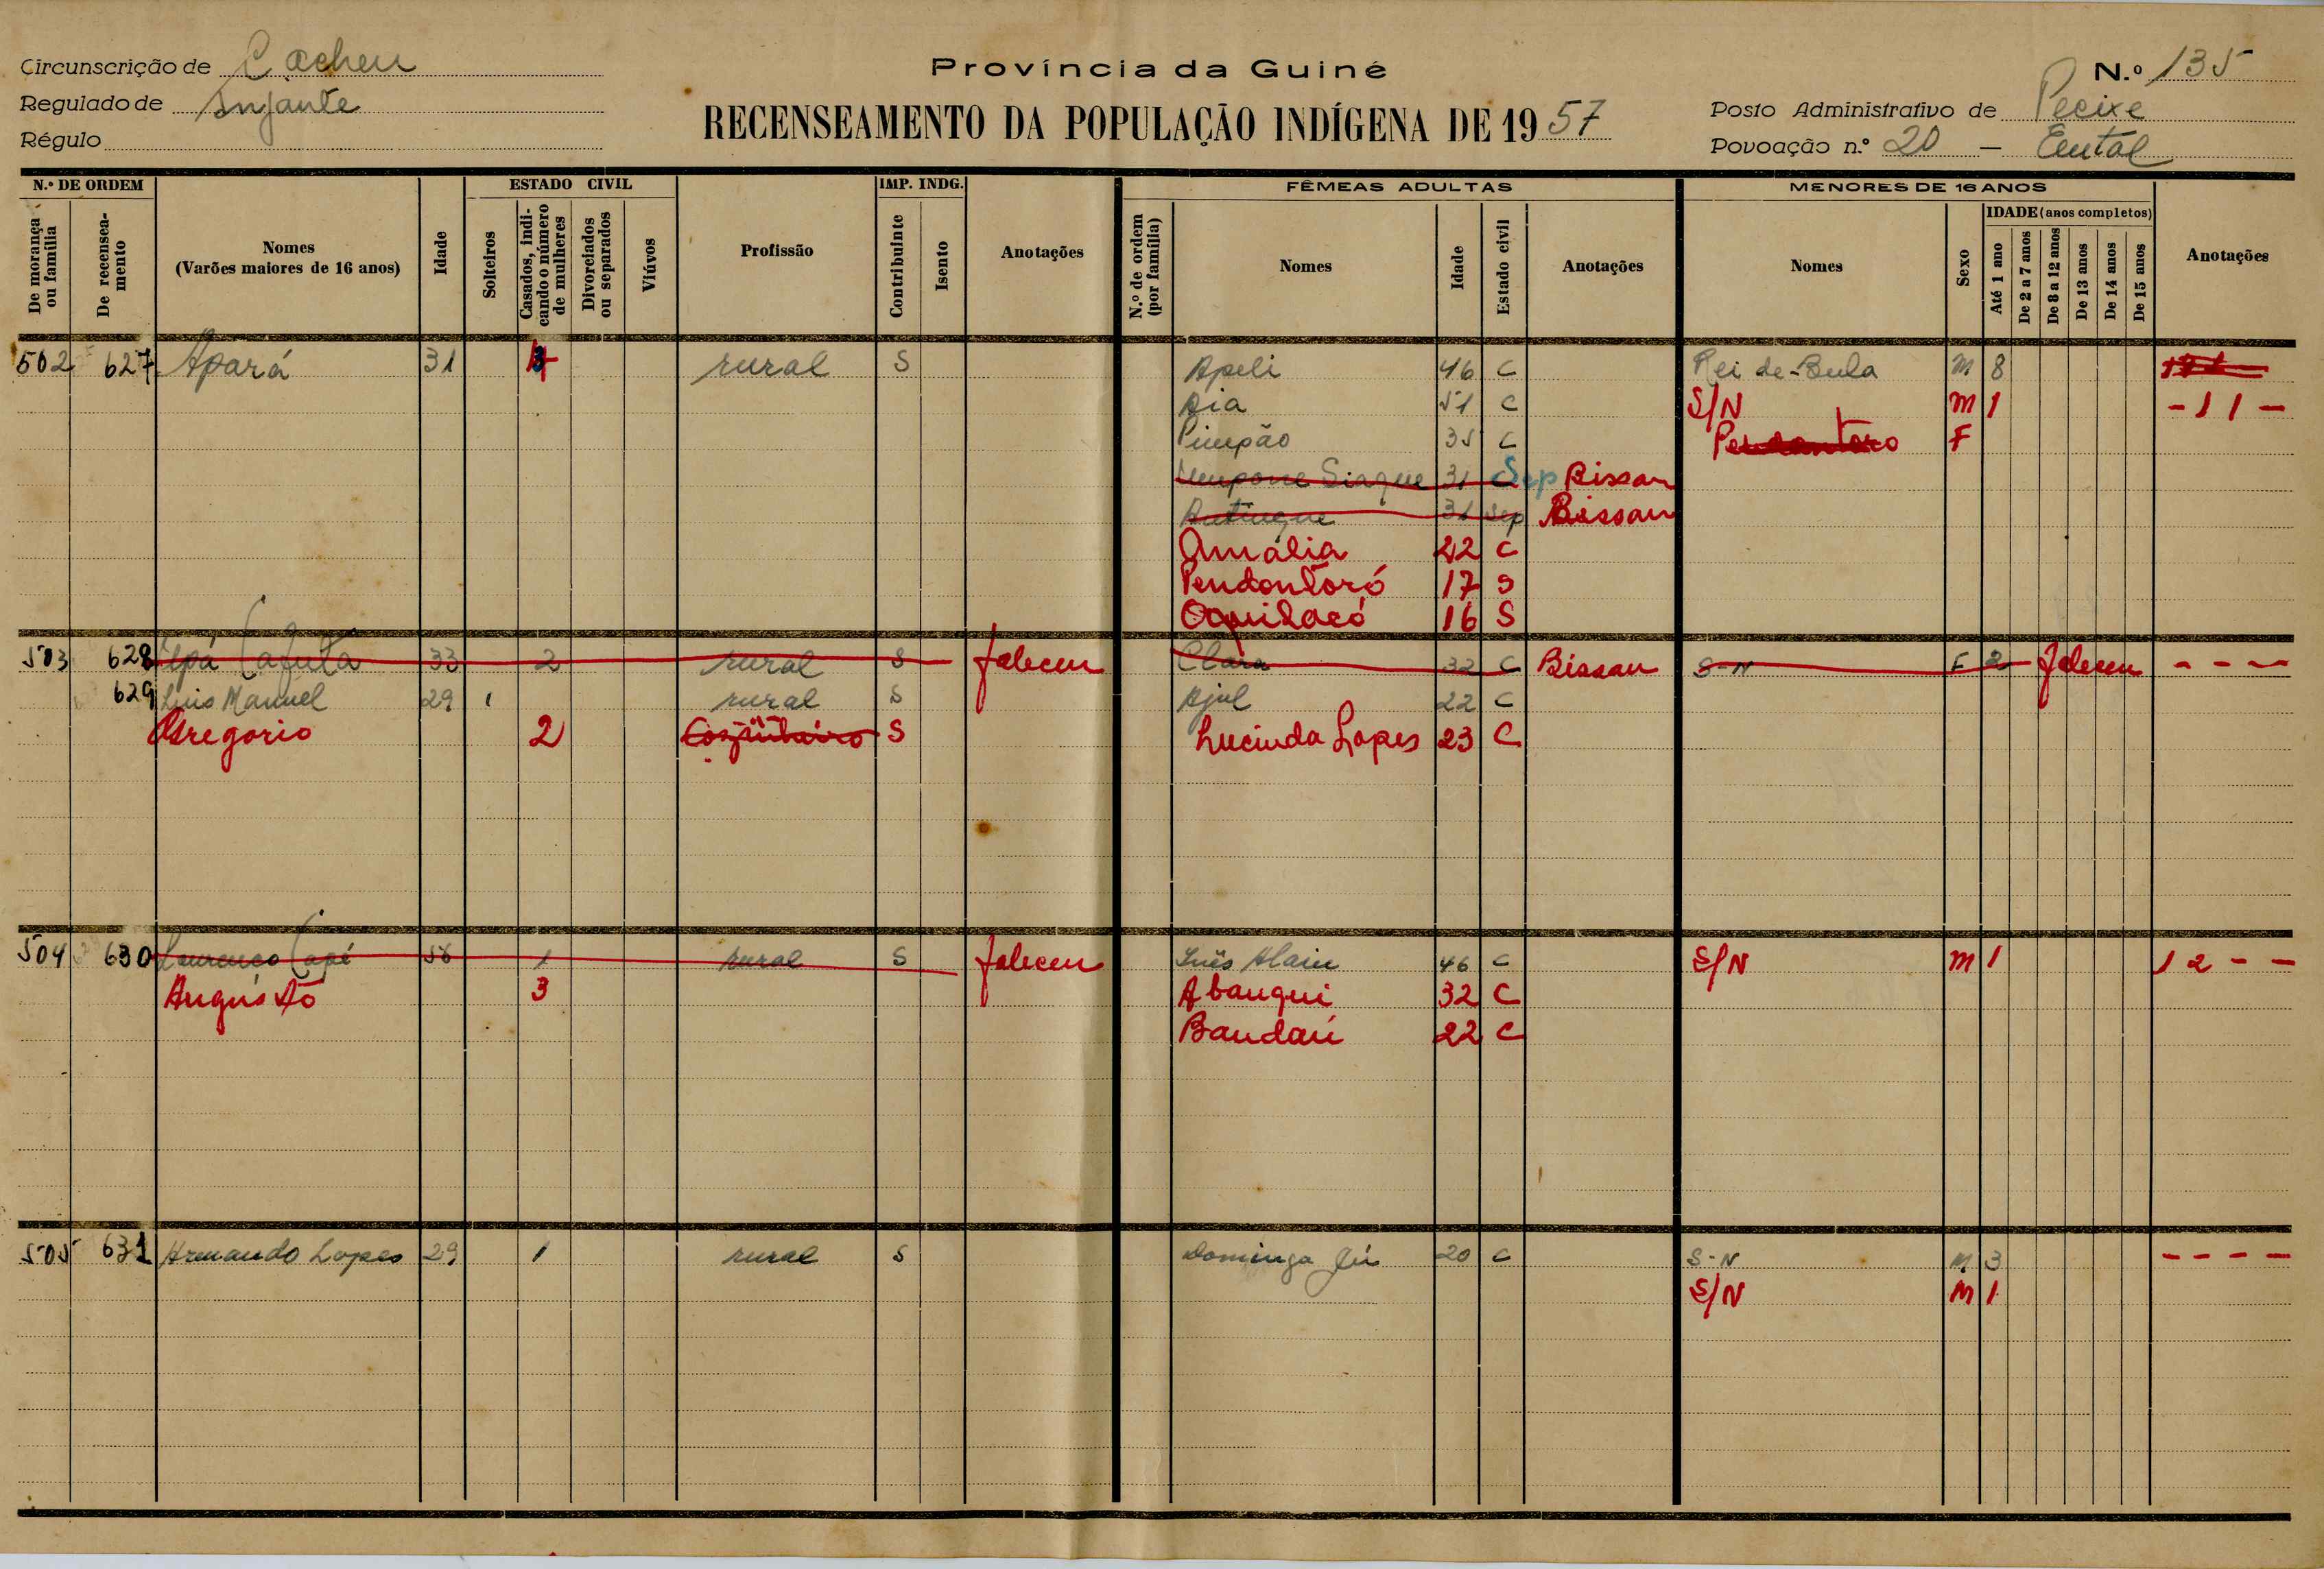 Província da Guiné
N.º 135
Circunscrição de Cacheu
Regulado de
Régulo
RECENSEAMENTO DA POPULAÇÃO INDÍGENA DE 1957
Posto Administrativo de Pecixe
Povoação n.º 20 —
N.º DE ORDEM
De morança ou família
De recenseamento
Nomes
(Varões maiores de 16 anos)
Idade
ESTADO CIVIL
Solteiros
Casados, indicando o número de mulheres
Divorciados ou separados
Viúvos
Profissão
IMP. INDG.
Contribuinte
Isento
Anotações
FÊMEAS ADULTAS
N.º de ordem (por família)
Nomes
Idade
Estado civil
Anotações
MENORES DE 16 ANOS
Nomes
Sexo
IDADE (anos completos)
Até 1 ano
De 2 a 7 anos
De 8 a 12 anos
De 13 anos
De 14 anos
De 15 anos
Anotações
502 627 Apará 31 rural S Apeli 46 C Rei de-Bula M 8
Aia 51 C S/N M 1 - 1 1 -
Pimpão 35 C F
31 Sep Bissau
31 Sep Bissau
Amália 22 C
Pendontoró 17 S
16 S
503 628 33 2 rural S faleceu Clara 32 C Bissau S-N F 2 faleceu - - -
629 Luis Manuel 29 1 rural S Ajul 22 C
Gregorio 2 S Lucinda Lopes 23 C
504 630 Lourenço Capé 56 1 rural S faleceu Inês Alain 46 C S/N M 1 1 2 - -
Augusto 3 Abauqui 32 C
22 C
505 631 Armando Lopes 29 1 rural S Dominga 20 C S-N M 3 - - - -
S/N M 1